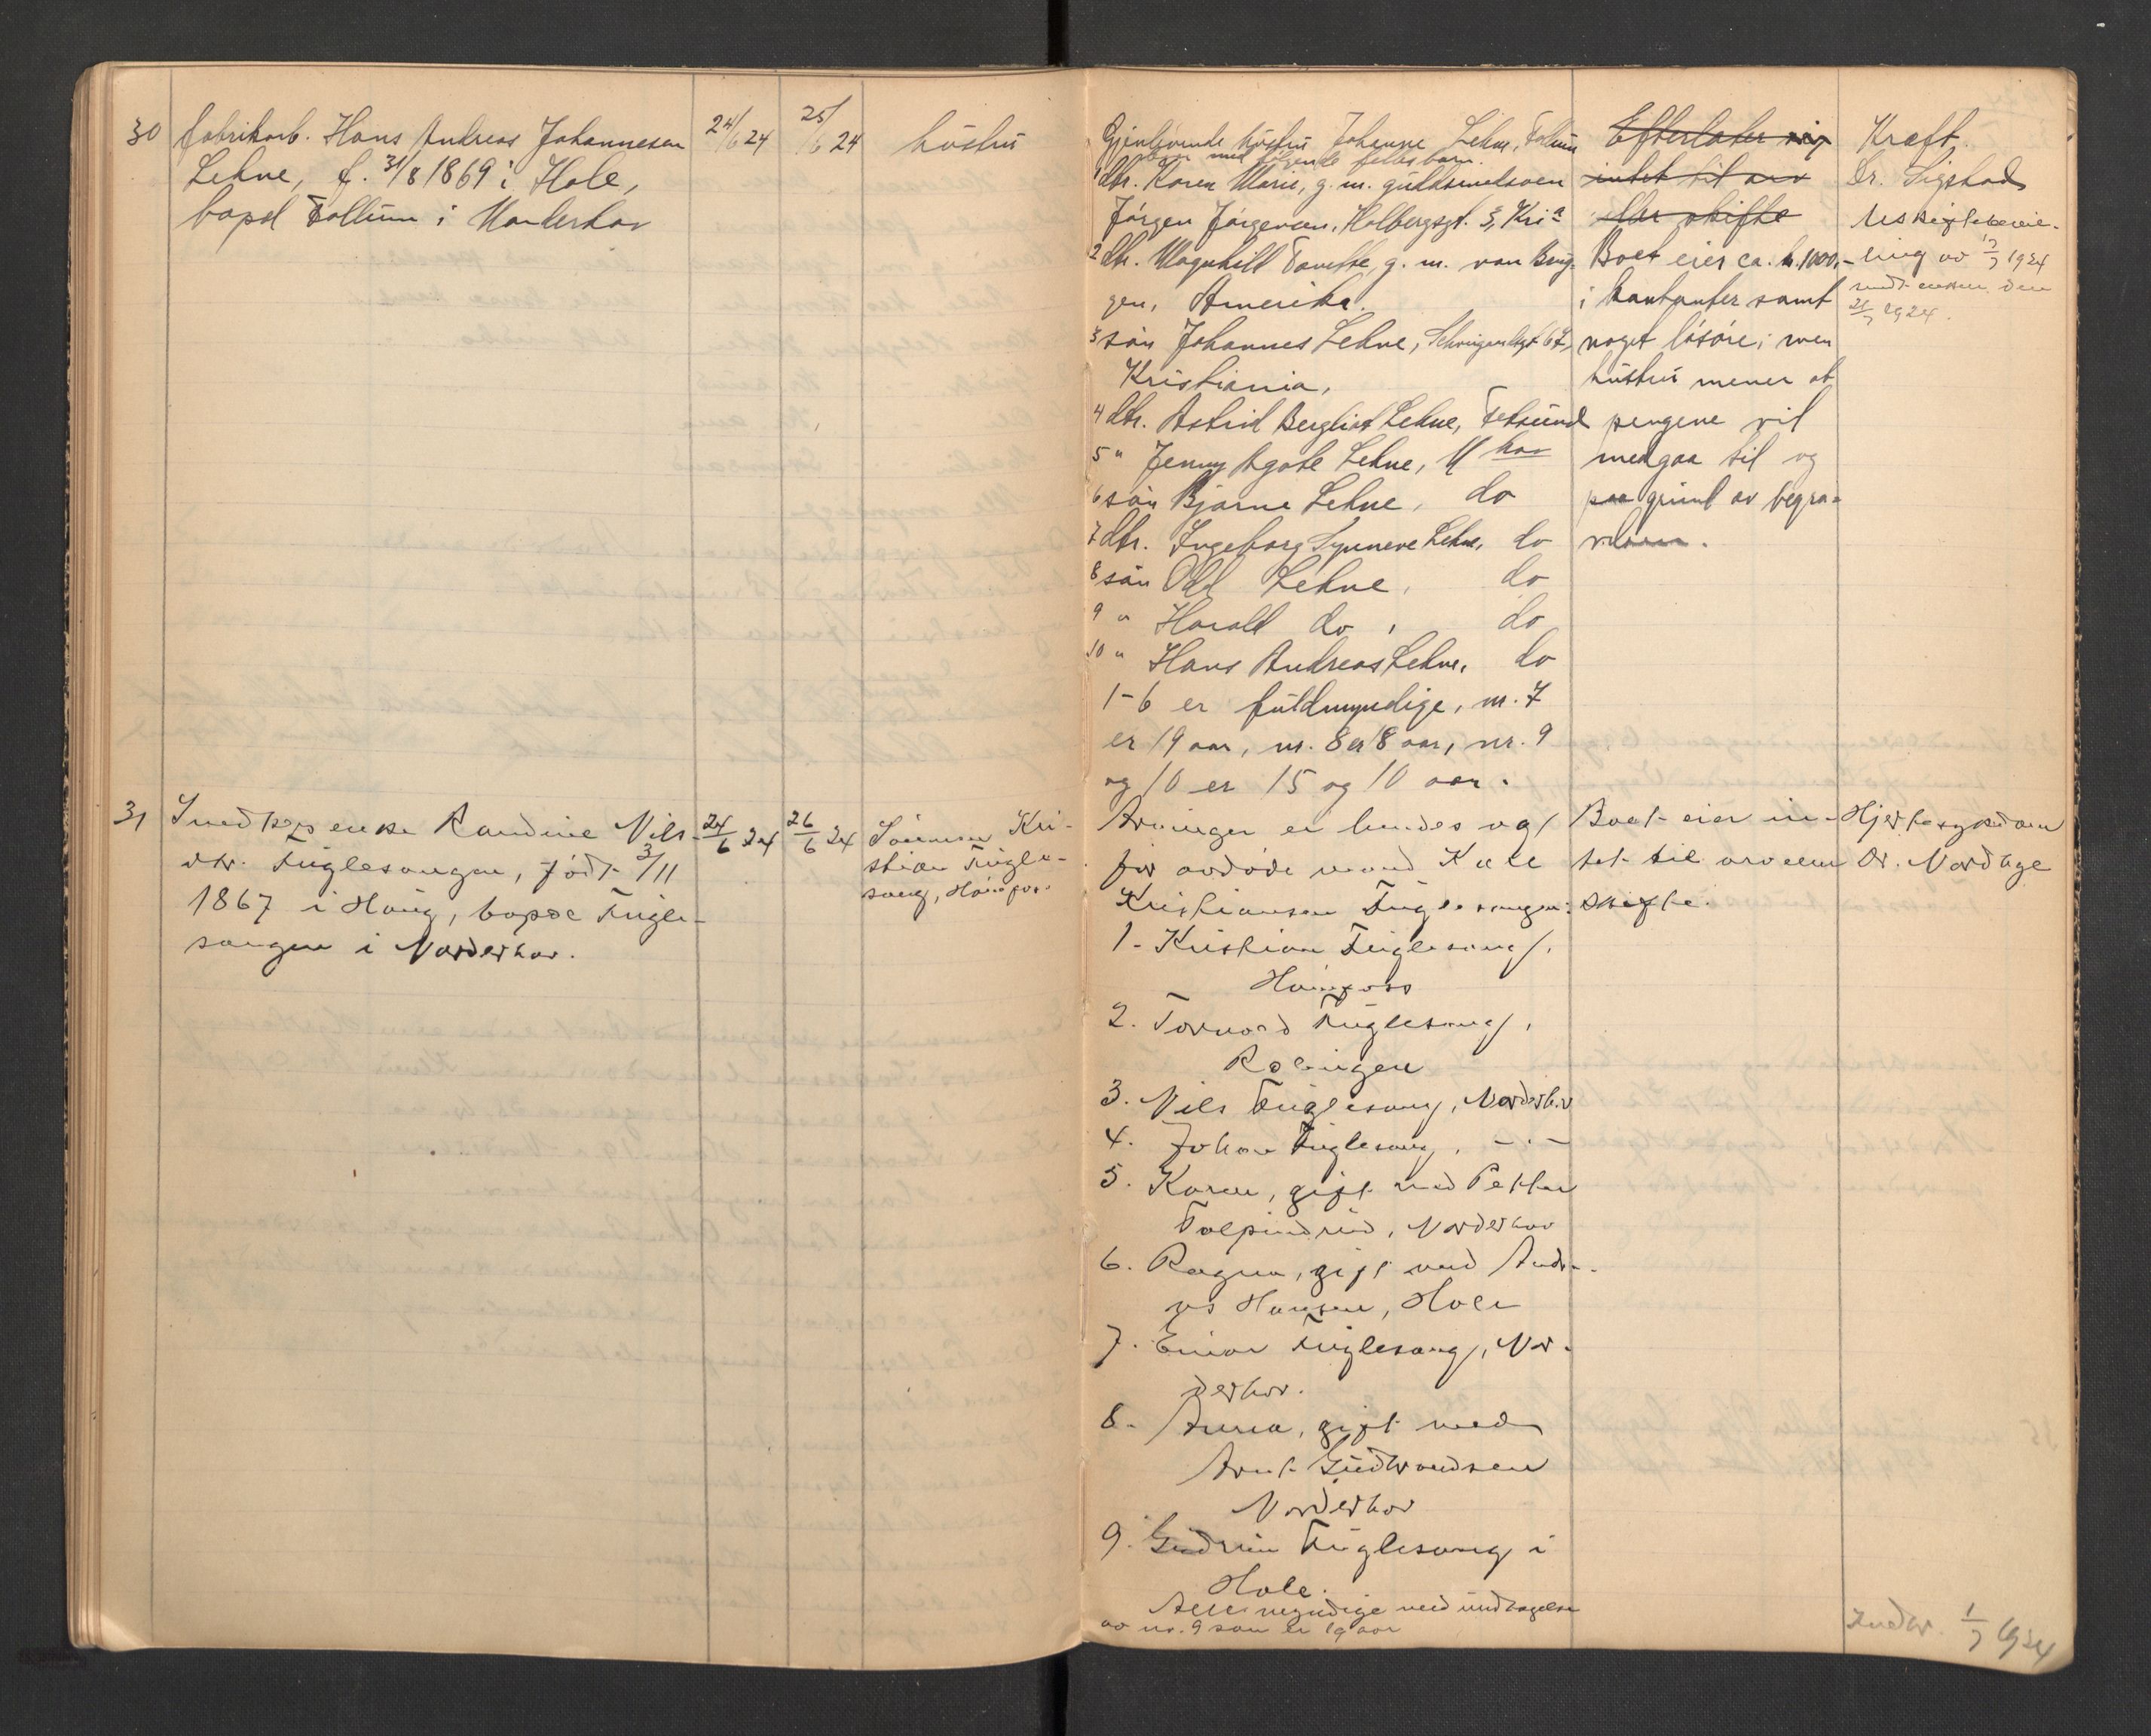 30
fabrikarb. Hans Andreas Johannesen
Lehne, f. 31/8 1869 i Hole,
bopel Follum i Norderhov
24/6 24
25/6 24
hustru
Gjenlevende hustru Johanne Lehne, Follum
med følgende fellesbarn.
1 dtr. Karen Marie, g. m. guldsmedsven
Jørgen Jørgensen, Holbergsgt. 3, Kria
2 dtr. Magnhild Tomette g. m. van Brug-
gen, Amerika.
3 søn Johannes Lehne, Schweigaardsgt 67,
Kristiania,
4 dtr. Astrid Bergliot Lehne, Fetsund
5 " Jenny Agate Lehne, N hov
6 søn Bjarne Lehne, do
7 dtr. Ingeborg Synneve Lehne, do
8 søn Odd Lehne, do
9 " Harald do, do
10 " Hans Andreas Lehne, do
1-6 er fuldmyndige, nr. 7
er 19 aar, nr. 8 er 18 aar, nr. 9
og 10 er 15 og 10 aar.
Efterlater sig
intet til arv
eller skifte
Boet eier ca. kr. 1000,-
i kontanter samt
noget løsøre; men
hustru mener at
pengene vil
medgaa til og
paa grund av begra-
velsen.
Kræft.
Dr. Sigstad
Uskiftebevil-
ling av 17/7 1924
sendt enken den
21/7 1924.
31
Snedkerenke Randine Nils-
dtr. Fuglesangen, født 3/11
1867 i Haug, bopæl Fugle-
sangen i Norderhov.
24/6 24
26/6 24
Sønnen Kri-
stian Fugle-
sang, Hønefos.
Arvinger er hendes og
før avdøde mand Kale
Kristiansen Fuglesangen:
1. Kristian Fuglesang,
Hønefoss
2. Torvald Fuglesang,
3. Nils Fuglesang, Norderhov
4. Johan Fuglesang, -"-
5. Karen, gift med Petter
Tolpinrud, Norderhov
6. Ragna, gift med Andr-
eas Hansen, Hole
7. Einar Fuglesang, Nor-
derhov.
8. Anna, gift med
Arnt Gudbrandsen
Norderhov
9. Gudrun Fuglesang i
Hole.
Alle myndige med undtagelse
av nr. 9 som er 19 aar
Boet eier in-
tet til arv eller
skifte.
Hjertesygdom
Dr. Nordhage
Indb. 1/7 1924